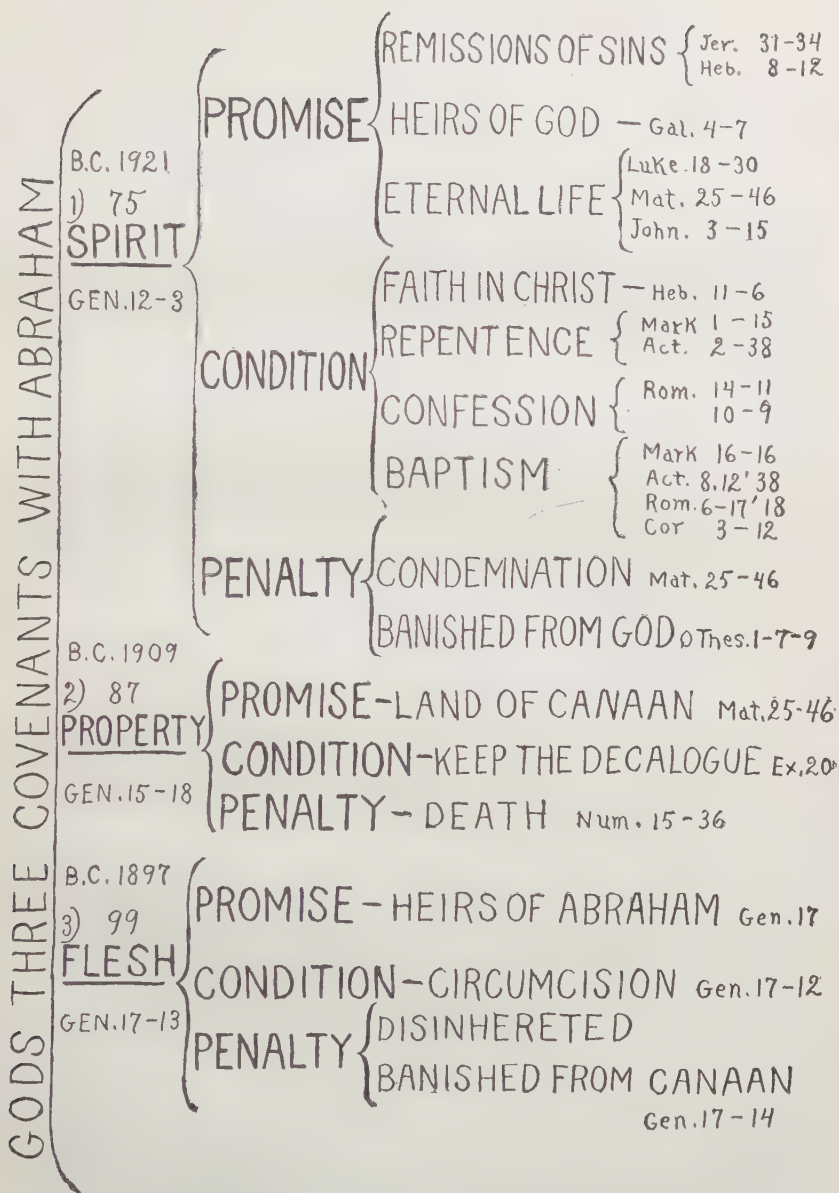 GODS THREE COVENANTS WITH ABRAHAM
B.C. 1921
1) 75
SPIRIT
GEN.12-3
PROMISE
REMISSIONS OF SINS
Jer. 31-34
Heb. 8-12
HEIRS OF GOD - Gal. 4-7
ETERNAL LIFE
Luke.18-30
Mat. 25-46
John. 3-15
CONDITION
FAITH IN CHRIST - Heb. 11-6
REPENTENCE
Mark 1-15
Act. 2-38
CONFESSION
Rom. 14-11
10-9
BAPTISM
Mark 16-16
Act. 8.12'38
Rom. 6-17'18
Cor 3-12
PENALTY
CONDEMNATION Mat. 25-46
BANISHED FROM GOD Thes. 1-7-9
B.C. 1909
2) 87
PROPERTY
GEN.15-18
PROMISE-LAND OF CANAAN Mat.25-46
CONDITION-KEEP THE DECALOGUE Ex.20
PENALTY-DEATH Num. 15-36
B.C. 1897
3) 99
FLESH
GEN.17-13
PROMISE-HEIRS OF ABRAHAM Gen.17
CONDITION-CIRCUMCISION Gen.17-12
PENALTY
DISINHERETED
BANISHED FROM CANAAN
Gen.17-14